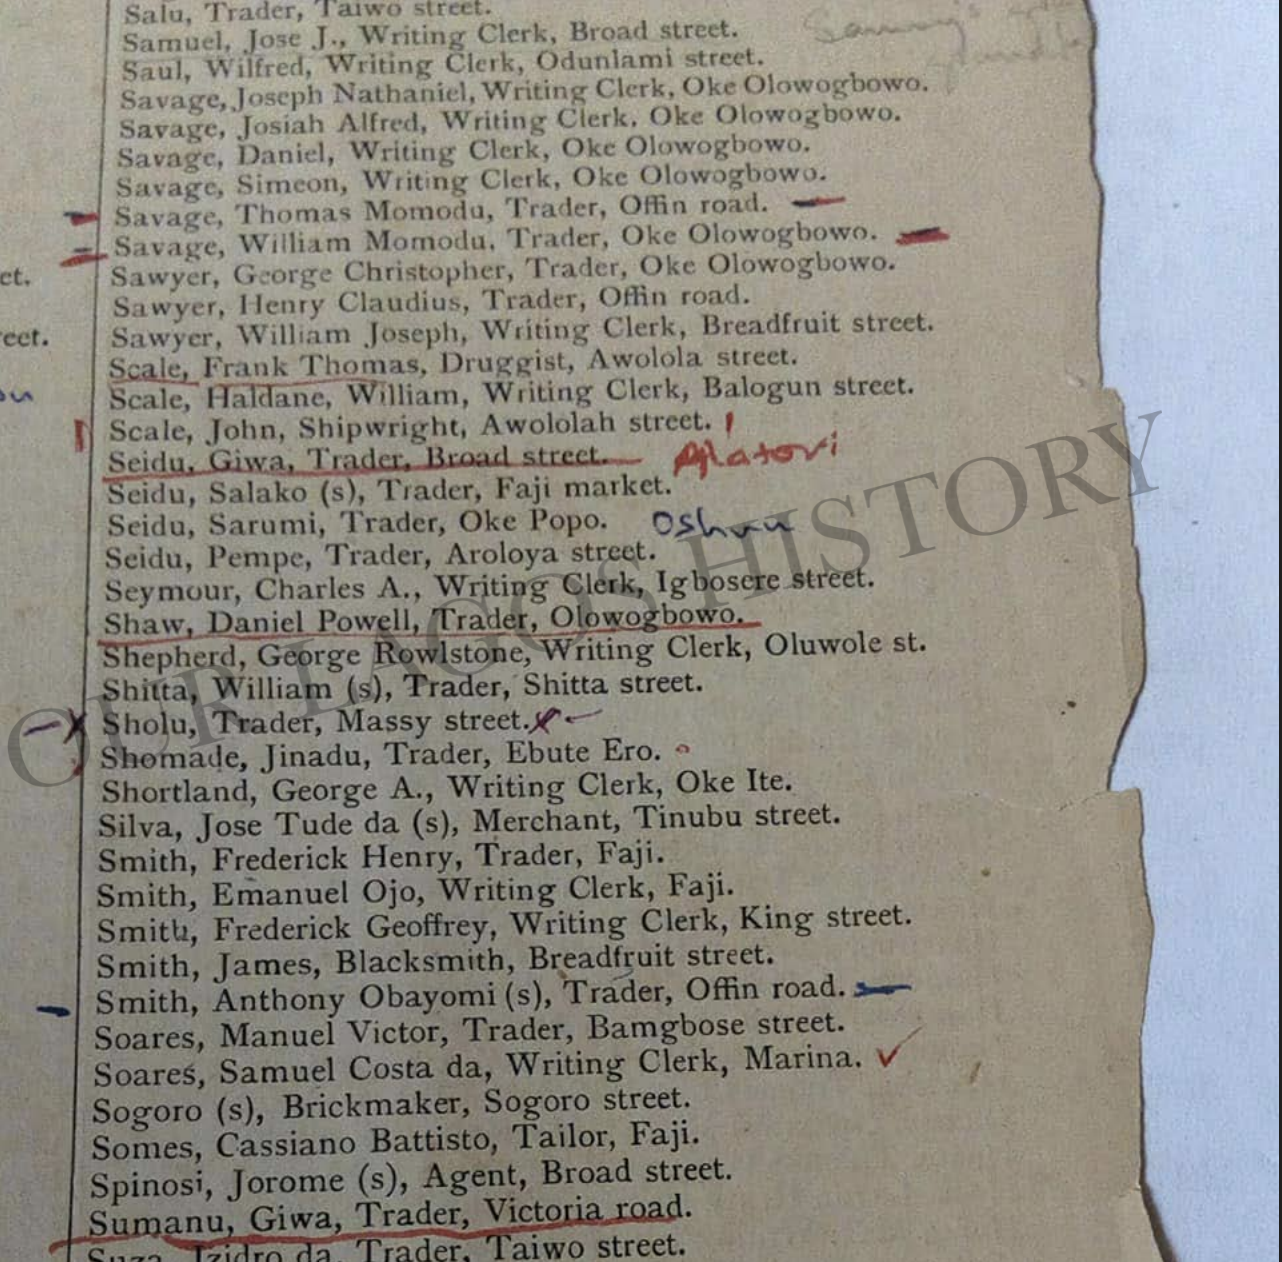 Salu, Trader, Taiwo street.
Samuel, Jose J., Writing Clerk, Broad street.
Saul, Wilfred, Writing Clerk, Odunlami street.
Savage, Joseph Nathaniel, Writing Clerk, Oke Olowogbowo.
Savage, Josiah Alfred, Writing Clerk, Oke Olowogbowo.
Savage, Daniel, Writing Clerk, Oke Olowogbowo.
Savage, Simeon, Writing Clerk, Oke Olowogbowo.
Savage, Thomas Momodu, Trader, Offin road.
Savage, William Momodu, Trader, Oke Olowogbowo.
et.
Sawyer, George Christopher, Trader, Oke Olowogbowo.
Sawyer, Henry Claudius, Trader, Offin road.
reet.
Sawyer, William Joseph, Writing Clerk, Breadfruit street.
Scale, Frank Thomas, Druggist, Awolola street.
Scale, Haldane, William, Writing Clerk, Balogun street.
Scale, John, Shipwright, Awololah street.
Seidu, Giwa, Trader, Broad street. Alatori
Seidu, Salako (s), Trader, Faji market.
Seidu, Sarumi, Trader, Oke Popo.
Seidu, Pempe, Trader, Aroloya street.
Seymour, Charles A., Writing Clerk, Igbosere street.
Shaw, Daniel Powell, Trader, Olowogbowo.
Shepherd, George Rowlstone, Writing Clerk, Oluwole st.
Shitta, William (s), Trader, Shitta street.
Sholu, Trader, Massy street.
Shomade, Jinadu, Trader, Ebute Ero.
Shortland, George A., Writing Clerk, Oke Ite.
Silva, Jose Tude da (s), Merchant, Tinubu street.
Smith, Frederick Henry, Trader, Faji.
Smith, Emanuel Ojo, Writing Clerk, Faji.
Smith, Frederick Geoffrey, Writing Clerk, King street.
Smith, James, Blacksmith, Breadfruit street.
Smith, Anthony Obayomi (s), Trader, Offin road.
Soares, Manuel Victor, Trader, Bamgbose street.
Soares, Samuel Costa da, Writing Clerk, Marina.
Sogoro (s), Brickmaker, Sogoro street.
Somes, Cassiano Battisto, Tailor, Faji.
Spinosi, Jorome (s), Agent, Broad street.
Sumanu, Giwa, Trader, Victoria road.
Suza, Izidro da, Trader, Taiwo street.
OUR LAGOS HISTORY